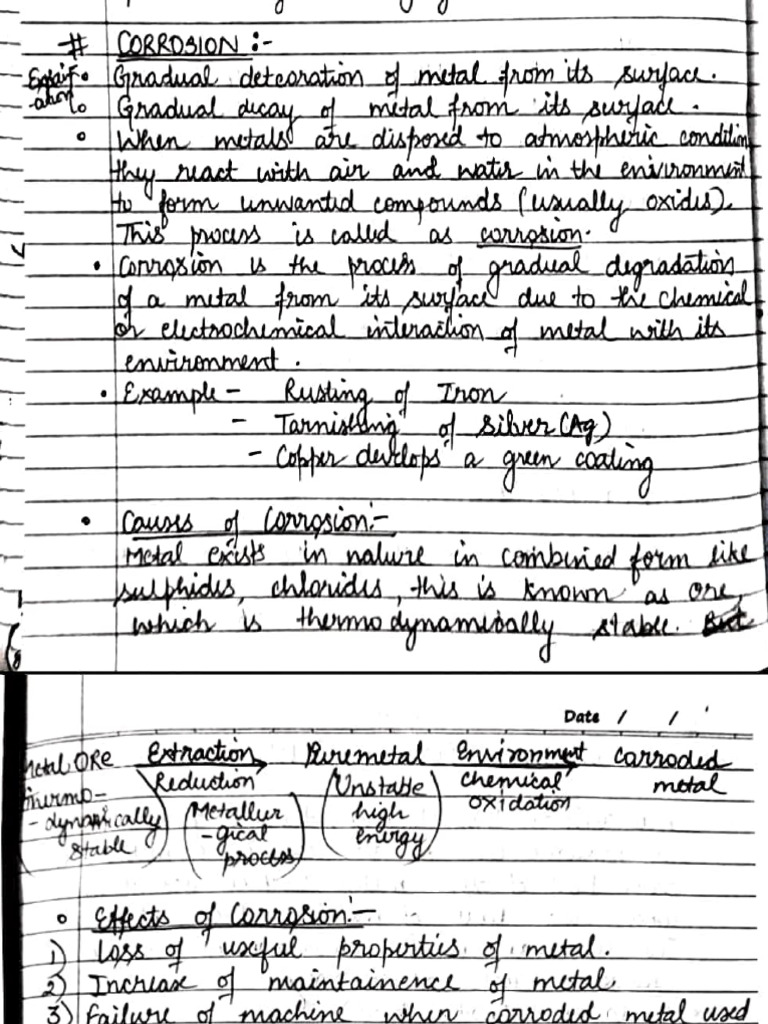 # CORROSION :-
Explain
-ation
Gradual deteoration of metal from its surface.
Gradual decay of metal from its surface.
When metals are disposed to atmospheric condition
they react with air and water in the environment
to form unwanted compounds (usually oxides).
This process is called as corrosion.
• Corrosion is the process of gradual degradation
of a metal from its surface due to the chemical
or electrochemical interaction of metal with its
environment.
• Example - Rusting of Iron
- Tarnishing of Silver (Ag)
- Copper develops a green coating
• Causes of Corrosion:-
Metal exists in nature in combined form like
sulphides, chlorides, this is known as ore,
which is thermodynamically stable. But
Date / /
Metal ORe Extraction Puremetal Environment carroded
Reduction (Unstable chemical metal
thermo- (Metallur high oxidation
-dynamically -gical energy)
stable) process)
Effects of Corrosion:-
1) Loss of useful properties of metal.
2) Increase of maintainence of metal
3) Failure of machine when corroded metal used